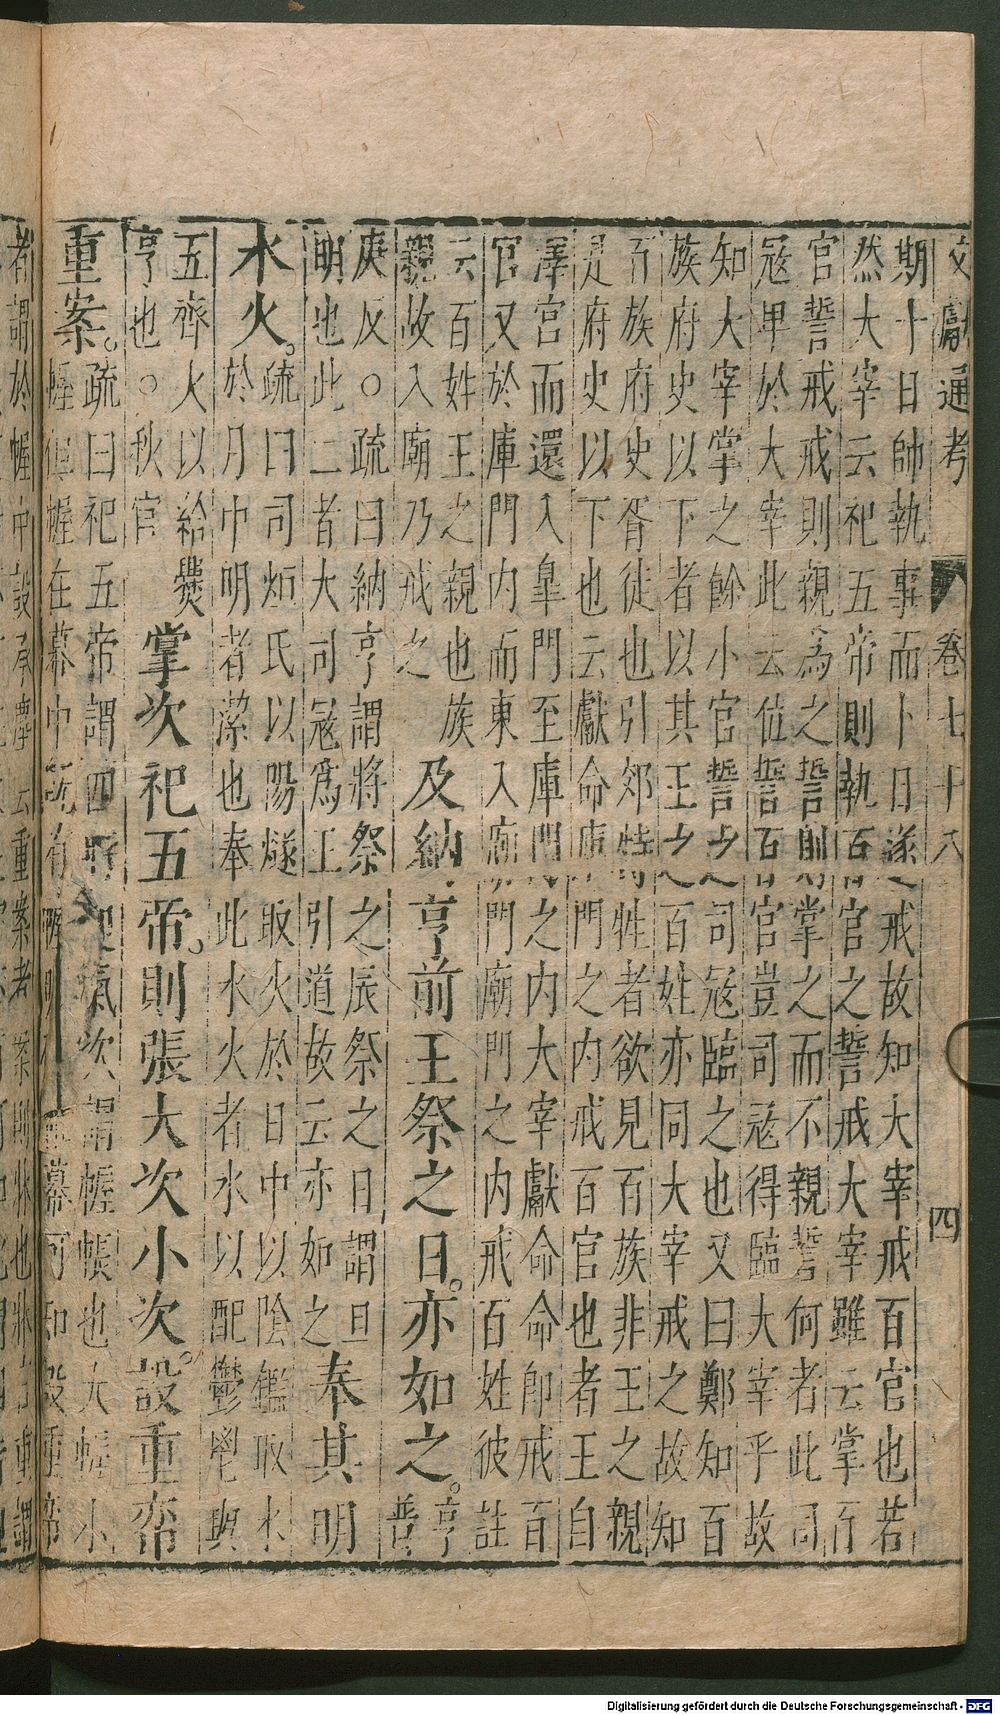 文獻通考 卷七十八 四
期十日帥執事而卜日遂戒故知大宰戒百官也若
然大宰云祀五帝則執百官之誓戒大宰雖云掌百
官誓戒戒則親為之誓則掌之而不親誓何者此司
寇卑於大宰此云位誓百官豈司寇得臨大宰乎故
知大宰掌之餘小官誓之司寇臨之也又曰鄭知百
族府史以下者以其王之百姓亦同大宰戒之故知
百族府史胥徒也引郊特牲者欲見百族非王之親
是府史以下也云獻命庫門之内戒百官也者王自
澤宫而還入皐門至庫門之内大宰獻命命即戒百
官又於庫門内而東入廟門廟門之内戒百姓彼註
云百姓王之親也族
親故入廟乃戒之
及納亨前王祭之日亦如之
亨普
庚反○疏曰納亨謂將祭之辰祭之日謂旦
明也此二者大司寇爲王引道故云亦如之
奉其明
水火
疏曰司烜氏以陽燧取火於日中以陰鑑取水
於月中明者潔也奉此水火者水以配鬱鬯與
五齊火以給爨
亨也○秋官
掌次祀五帝則張大次小次設重帟
重案
疏曰祀五帝謂四時迎氣次謂幄帳也大幄小
幄但幄在幕中既有幄則有幕可知設重帟
者謂於幄中設承塵云重案者案則牀也牀言重謂
Digitalisierung gefördert durch die Deutsche Forschungsgemeinschaft - DFG